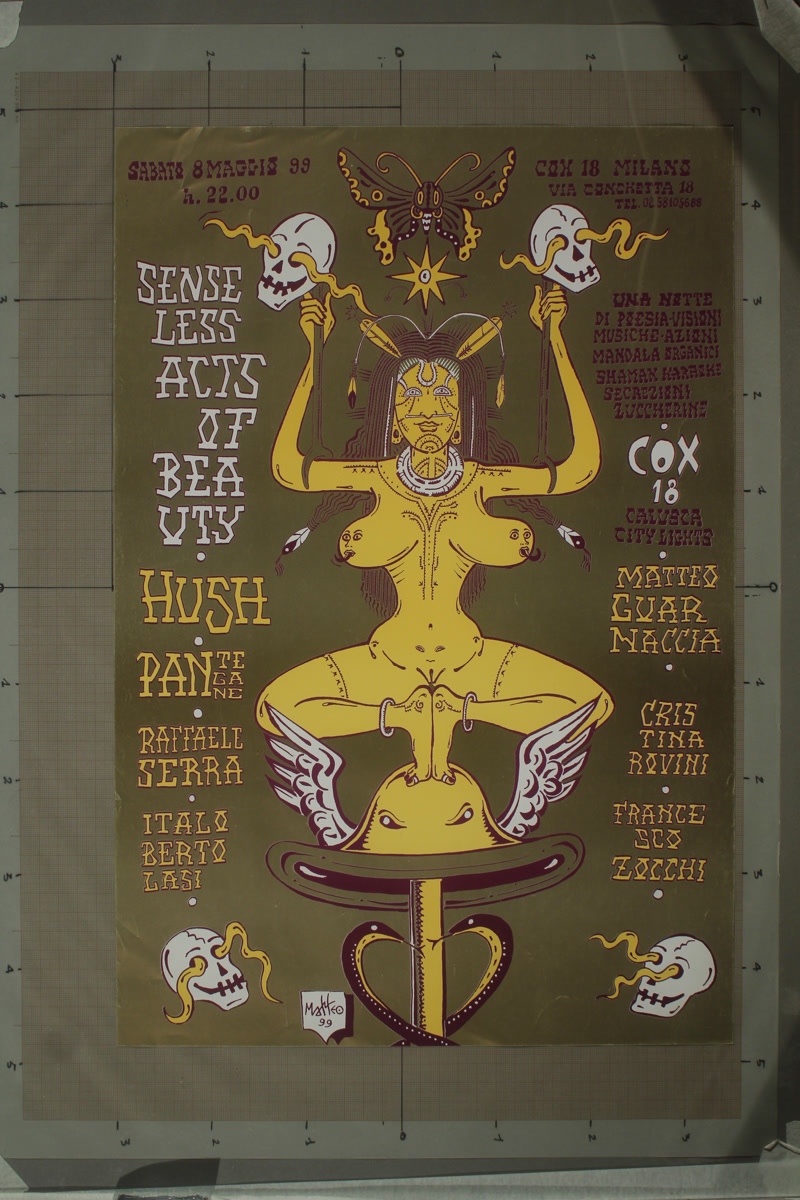 SABATO 8 MAGGIO 99
h. 22.00
COX 18 MILANO
VIA CONCHETTA 18
TEL. 02 58105688
SENSE
LESS
ACTS
OF
BEA
UTY
HUSH
PANTE
GA
NE
RAFFAELE
SERRA
ITALO
BERTO
LASI
UNA NOTTE
DI POESIA-VISIONI
MUSICHE-AZIONI
MANDALA ORGANICI
SHAMAX KARAOKE
SECREZIONI
ZUCCHERINE
COX
18
CALUSCA
CITY LIGHTS
MATTEO
GUAR
NACCIA
CRIS
TINA
ROVINI
FRANCE
SCO
ZOCCHI
MATTEO
99